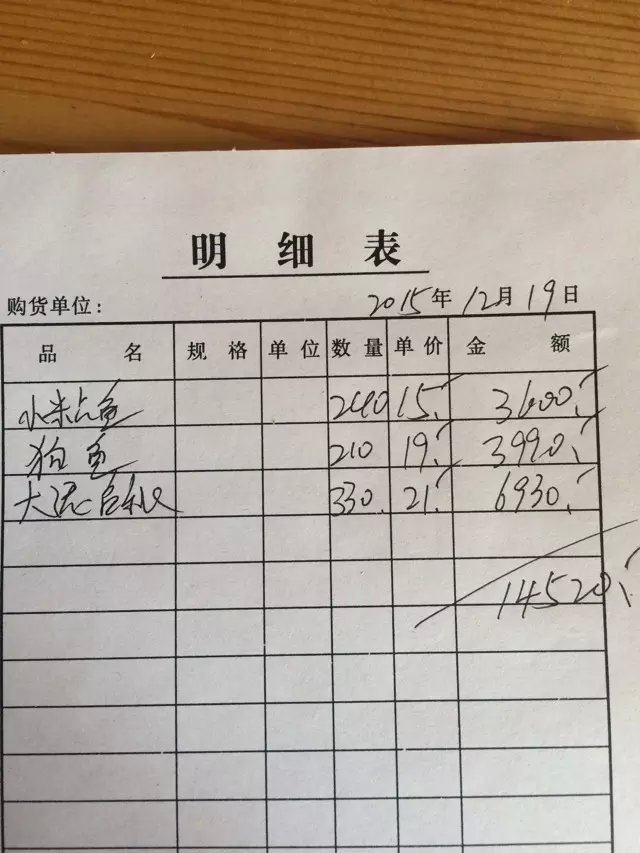 明细表
购货单位： 2015年12月19日
品名 规格 单位 数量 单价 金额
小米占鱼 240 15 3600
狗鱼 210 19 3990
大 330 21 6930
14520